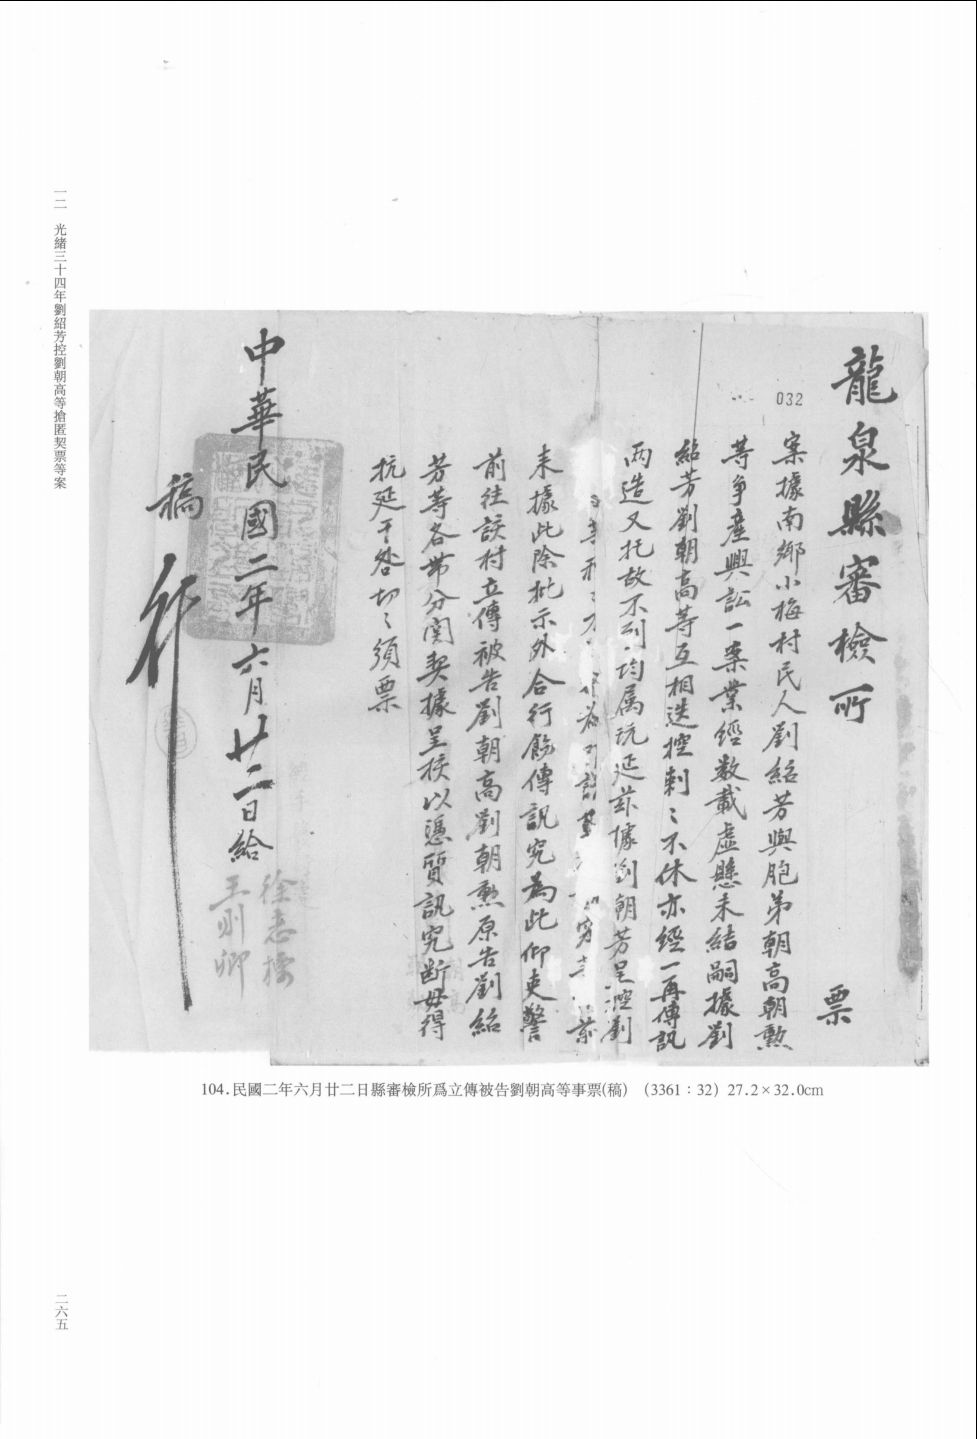 龍泉縣審檢所 票
032
案據南鄉小梅村民人劉紹芳與胞弟朝高朝勲
等爭產興訟一案業經数載虛懸未結嗣據劉
紹芳劉朝高等互相迭控刺〻不休亦經一再傳訊
两造又托故不到均属玩延茲據劉朝芳呈控劉
等
来據此除批示外合行飭傳訊究為此仰吏警
前往該村立傳被告劉朝高劉朝勲原告劉紹
芳等各带分関契據呈核以憑質訊究断毋得
抗延干咎切〻須票
中華民國二年六月廿二日給
徐志標
王則卿
稿 行
104.民國二年六月廿二日縣審檢所爲立傳被告劉朝高等事票(稿) (3361：32) 27.2×32.0cm
一二 光緒三十四年劉紹芳控劉朝高等搶匿契票等案
二六五